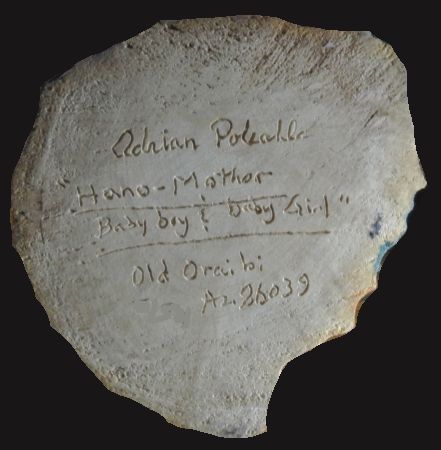 Adrian Poleahla
"Hano-Mother
Baby boy & Baby Girl"
Old Oraibi
Az 86039